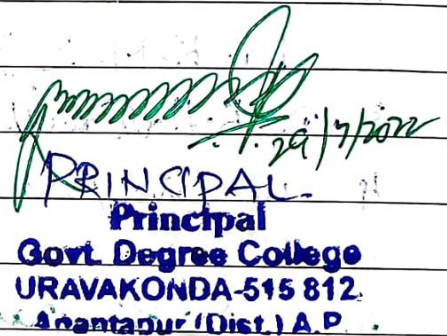 29/7/2022
PRINCIPAL.
Principal
Govt. Degree College
URAVAKONDA-515 812.
Anantapur (Dist.) A.P.